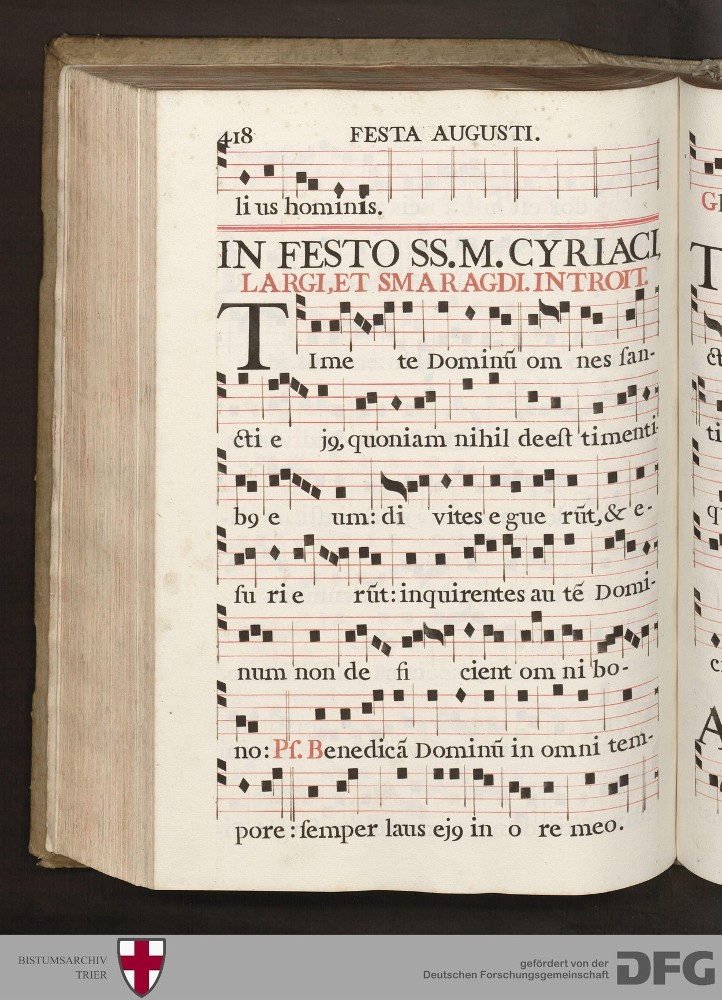 418 FESTA AUGUSTI.
li us hominis.
IN FESTO SS.M.CYRIACI,
LARGI, ET SMARAGDI. INTROIT.
TIme te Dominũ om nes ſan-
cti e jꝯ, quoniam nihil deeſt timenti
bꝯ e um: di vites e gue rũt, & e-
ſu ri e rũt: inquirentes au tẽ Domi-
num non de fi cient om ni bo-
no: Pſ. Benedicã Dominũ in omni tem-
pore: ſemper laus ejꝯ in o re meo.
BISTUMSARCHIV
TRIER
gefördert von der
Deutschen Forschungsgemeinschaft
DFG